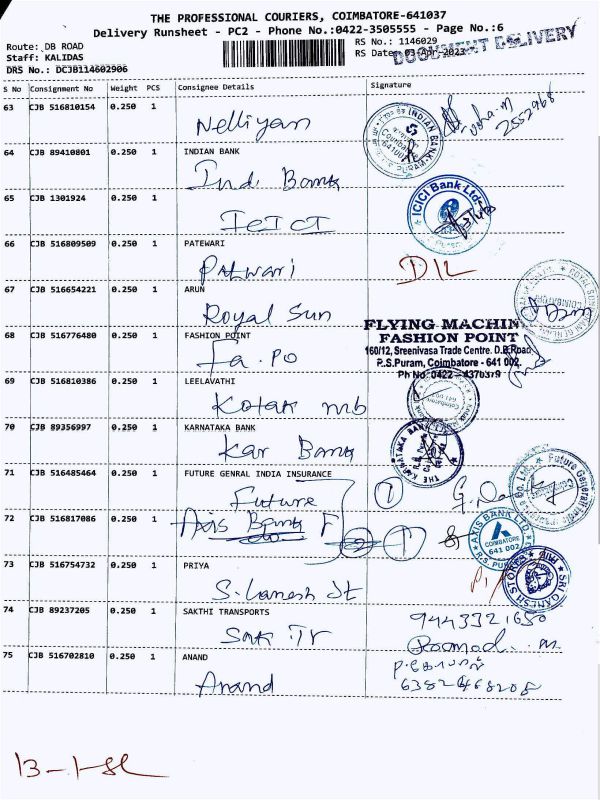 THE PROFESSIONAL COURIERS, COIMBATORE-641037
Delivery Runsheet - PC2 - Phone No.:0422-3505555 - Page No.:6
Route: DB ROAD
RS No.: 1146029
DOCUMENT DELIVERY
Staff: KALIDAS
RS Date: 03-Apr-2023
DRS No.: DCJB114602906
S No Consignment No Weight PCS Consignee Details Signature
63 CJB 516810154 0.250 1
Nelliyan
2552968
INDIAN BANK
64 CJB 89410801 0.250 1 INDIAN BANK
Ind. Bank
65 CJB 1301924 0.250 1
ICICI
ICICI Bank Ltd
66 CJB 516809509 0.250 1 PATEWARI
Patwari
67 CJB 516654221 0.250 1 ARUN
Royal Sun
68 CJB 516776480 0.250 1 FASHION POINT
Fa. Po
FLYING MACHINE
FASHION POINT
160/12, Sreenivasa Trade Centre. D.B.Road,
R.S.Puram, Coimbatore - 641 002.
Ph No: 0422 - 4370379
69 CJB 516810386 0.250 1 LEELAVATHI
Kotak mb
70 CJB 89356997 0.250 1 KARNATAKA BANK
Kar Bank
THE KARNATAKA BANK
71 CJB 516485464 0.250 1 FUTURE GENRAL INDIA INSURANCE
Future
1
Future Generali
72 CJB 516817086 0.250 1
Axis Bank F
AXIS BANK LTD.
COIMBATORE
641 002
R.S. PURAM
73 CJB 516754732 0.250 1 PRIYA
SRI GANESH STORES
74 CJB 89237205 0.250 1 SAKTHI TRANSPORTS
Sak Tr
9443321680
75 CJB 516702810 0.250 1 ANAND
Anand